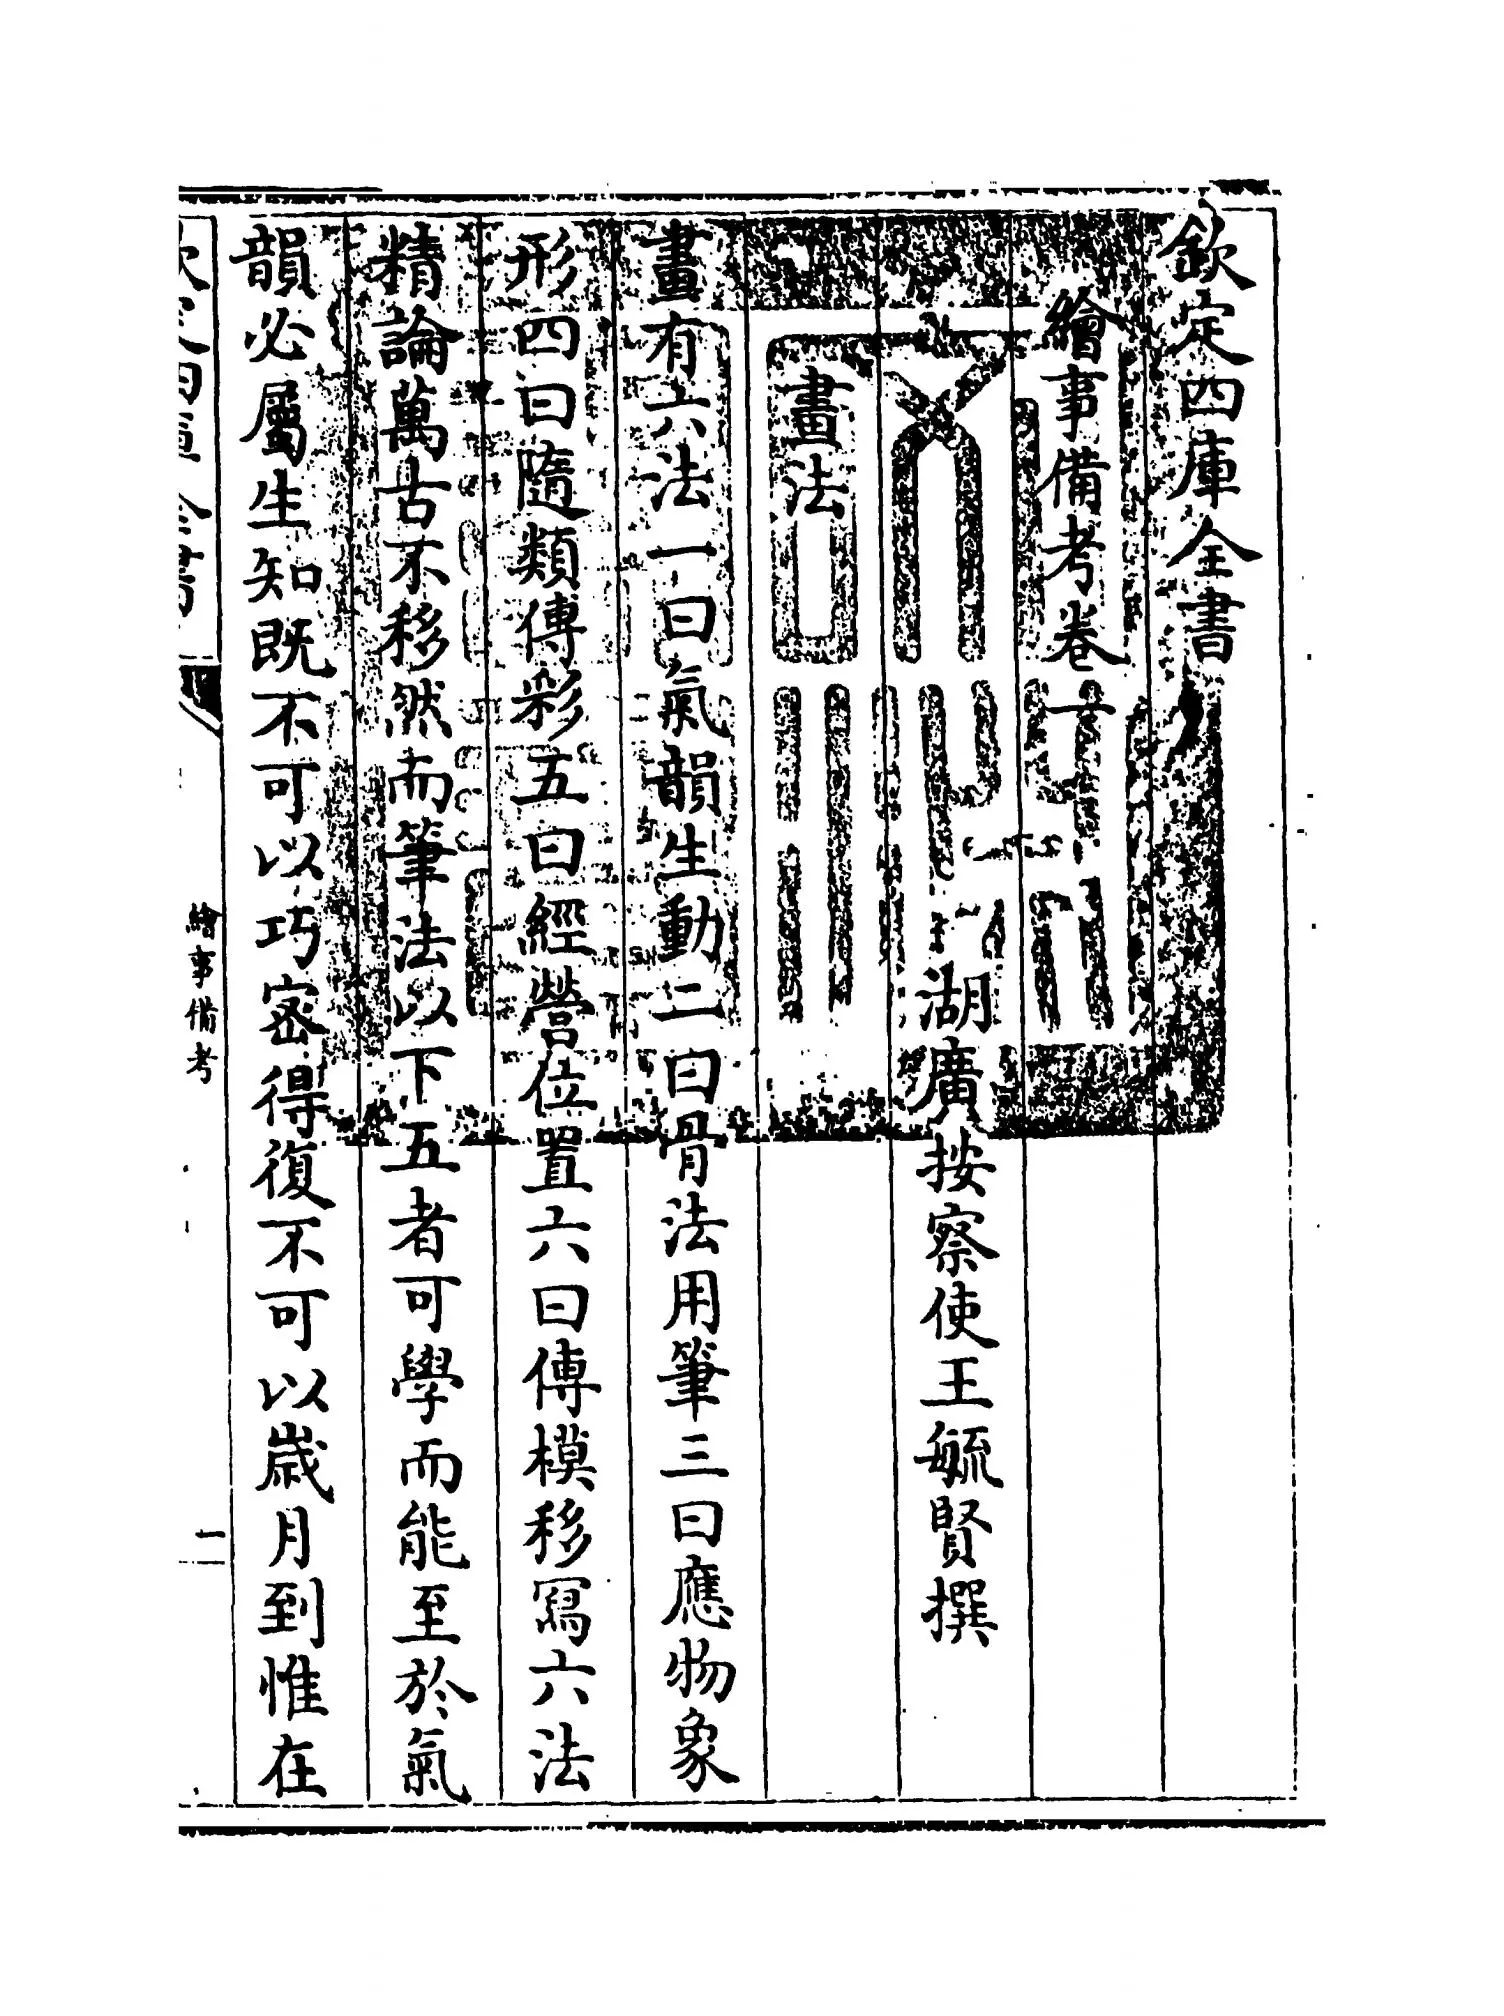 欽定四庫全書
繪事備考卷一
湖廣按察使王毓賢撰
畫法
畫有六法一曰氣韻生動二曰骨法用筆三曰應物象
形四曰隨類傅彩五曰經營位置六曰傳模移寫六法
精論萬古不移然而筆法以下五者可學而能至於氣
韻必屬生知既不可以巧密得復不可以歲月到惟在
繪事備考
一